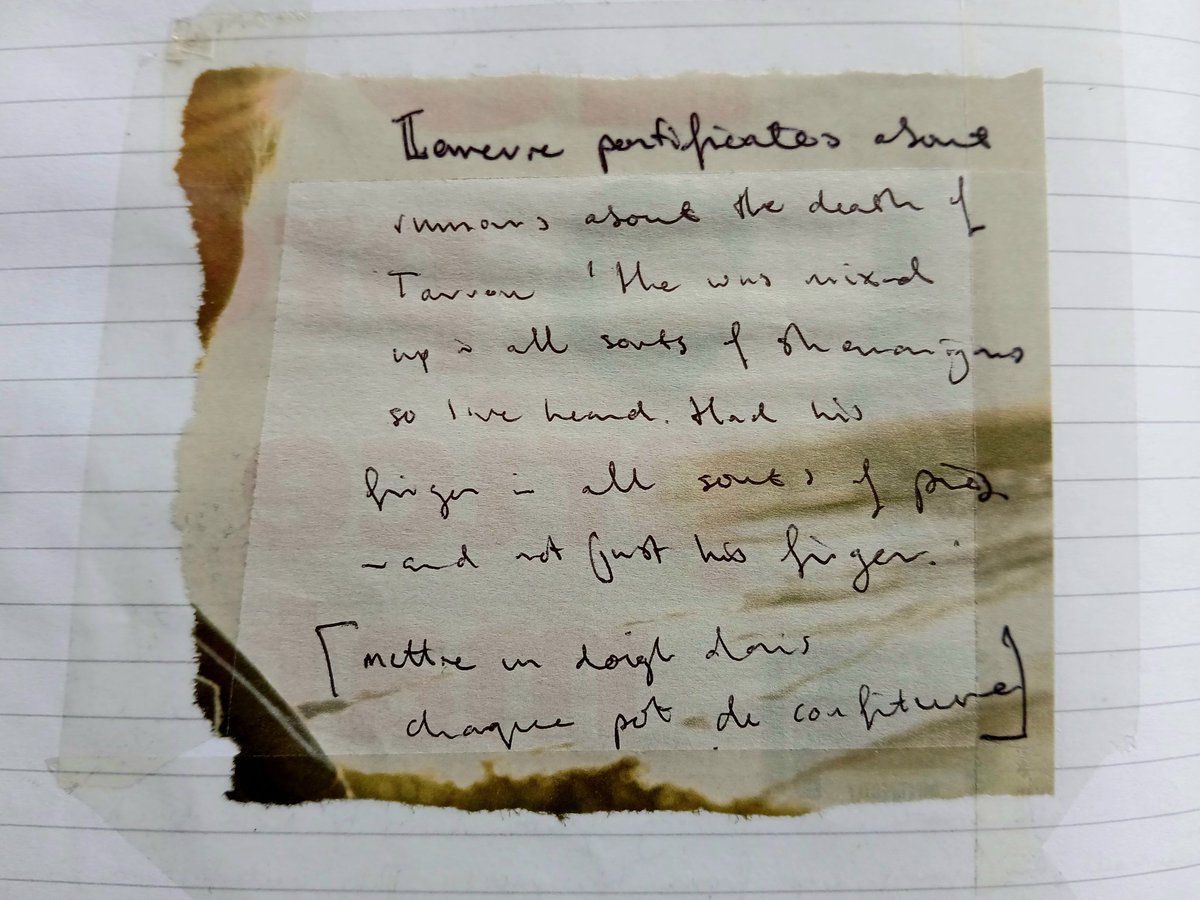 pontificates about
rumours about the death of
'He was mixed
up in all sorts of shenanigans
so I've heard. Had his
finger in all sorts of pies
– and not just his finger.'
[mettre un doigt dans
chaque pot de confiture]